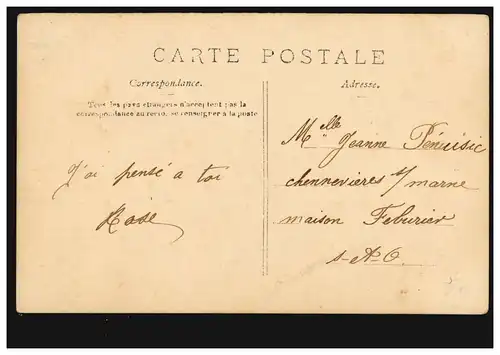 CARTE POSTALE
Correspondance.
Tous les pays étrangers n'acceptent pas la
correspondance au recto, se renseigner à la poste
J'ai pensé a toi
Rose
Adresse.
Melle Jeanne
chennevieres s/ marne
maison Feburier
s-&-O.